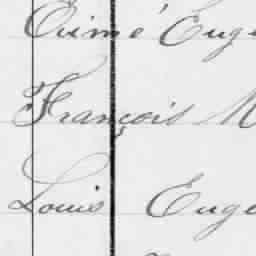 Aimé Euge
François M
Louis Euge